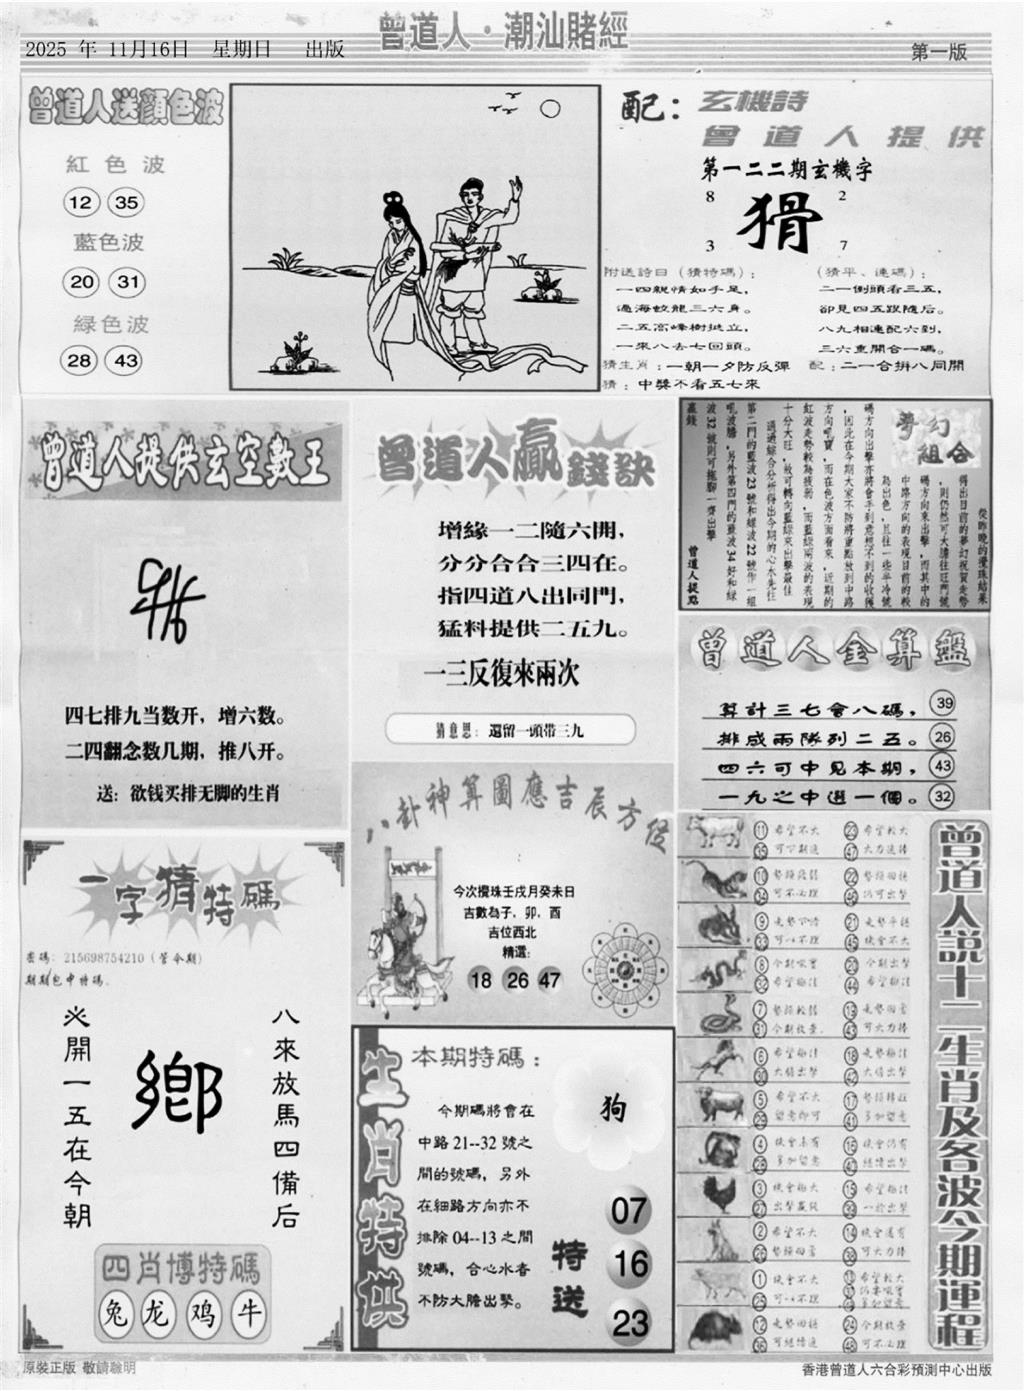 2025 年 11月16日 星期日 出版
曾道人·潮汕賭經
第一版
曾道人送顔色波
紅色波
12 35
藍色波
20 31
綠色波
28 43
配：玄機詩
曾道人提供
第一二二期玄機字
8 2
猾
3 7
附送詩曰（猜特碼）：
一四親情如手足，
過海蛟龍三六身。
二五高峰樹挺立，
一來八去七回頭。
（猜平、連碼）：
二一倒頭看三五，
卻見四五跟隨后。
八九相連配六到，
三六重開合一碼。
猜生肖：一朝一夕防反彈
配：二一合拼八同開
猜：中獎不看五七來
曾道人提供玄空數王
四七排九当数开，增六数。
二四翻念数几期，推八开。
送：欲钱买排无脚的生肖
曾道人贏錢訣
增緣一二隨六開，
分分合合三四在。
指四道八出同門，
猛料提供二五九。
一三反復來兩次
猜意思：還留一頭帶三九
夢幻組合
從昨晚的攪珠結果
得出目前的夢幻祝賀走勢
，則仍然可大膽往旺門號
碼方向來出擊，而其中的
中路方向的表現目前的較
為出色，且往一些半冷號
碼方向出擊亦將會手到意想不到的收獲
，因此在今期大家不防將重點放到中路
方向吼實，而在色波方面看來，近期的
紅波走勢較為疲弱，而藍綠兩波的表現
十分大旺，故可轉向藍綠來出擊最佳
通過綜合分析得出今期的心水先往
第二門的藍波23號和綠波22號作一組
吼波膽，另外第四門的藍波34好和綠
波32號則可拖腳一齊出擊
贏錢
曾道人提點
曾道人金算盤
算計三七會八碼， 39
排成兩隊列二五。 26
四六可中見本期， 43
一九之中選一個。 32
八卦神算圖應吉辰方位
今次攪珠壬戌月癸未日
吉數為子，卯，酉
吉位西北
精選：
18 26 47
一字猜特碼
密碼：215698754210（管今期）
期期包中特碼.
八來放馬四備后
鄉
火開一五在今朝
四肖博特碼
兔 龙 鸡 牛
生肖特供
本期特碼：
今期碼將會在
中路 21--32 號之
間的號碼，另外
在細路方向亦不
排除 04--13 之間
號碼，合心水者
不防大膽出擊。
狗
特送
07
16
23
曾道人說十二生肖及各波今期運程
11 希望不大 23 希望較大
35 可下期追 47 大力追捧
22 46
34 可不必理
9 21
33 45 機會不大
8 今期吼實 20 今期出擊
32 希望極佳 44 希望極佳
7 19
31 43 可大力捧
6 希望極佳 18
30 大膽出擊 42 大膽出擊
5 希望不大 17
29 留意即可 41 多加留意
4 機會未有 16 機會仍有
28 多加留意 40 繼續出擊
3 機會極大 15 希望極佳
27 39
2 希望不大 14 機會還有
26 38 可大力捧
1 機會不大 13 希望較大
25 可以不理
12 24 今期收棄
36 可繼續追 48 可不必理
原裝正版 敬請聰明
香港曾道人六合彩預測中心出版